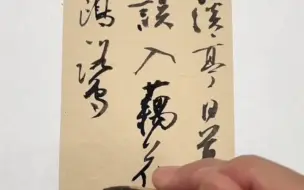 溪亭日暮
誤入藕花
鷗鷺